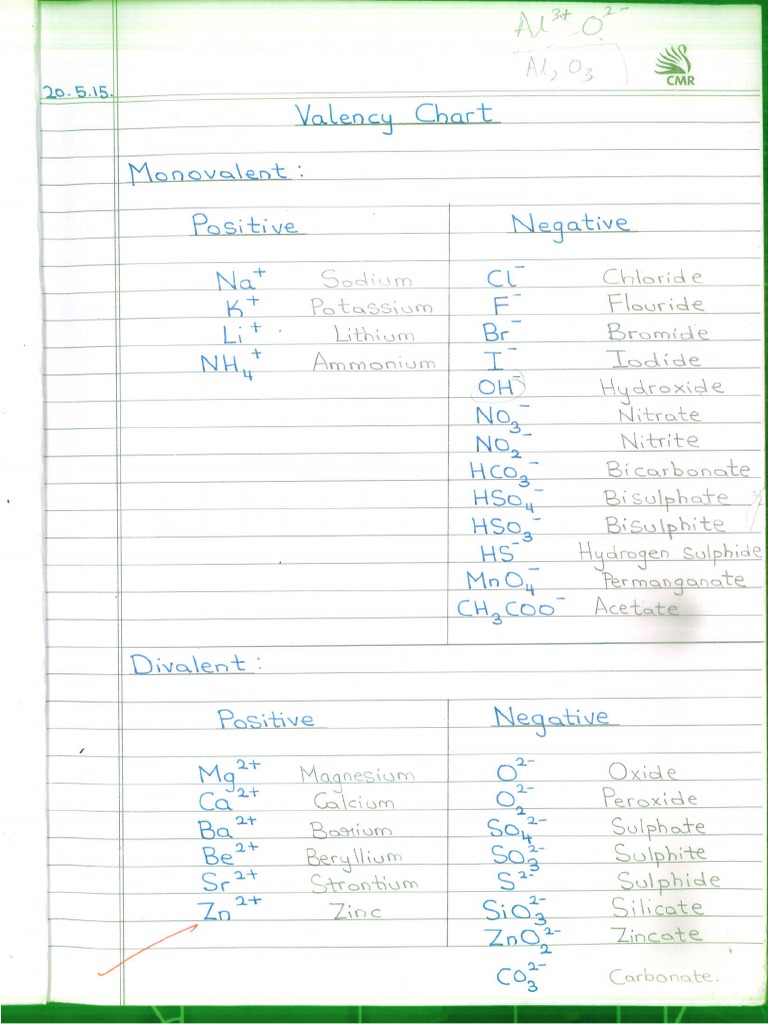 Al³⁺ O²⁻
Al₂O₃
CMR
20.5.15.
Valency Chart
Monovalent:
Positive Negative
Na⁺ Sodium Cl⁻ Chloride
K⁺ Potassium F⁻ Flouride
Li⁺ Lithium Br⁻ Bromide
NH₄⁺ Ammonium I⁻ Iodide
OH⁻ Hydroxide
NO₃⁻ Nitrate
NO₂⁻ Nitrite
HCO₃⁻ Bicarbonate
HSO₄⁻ Bisulphate
HSO₃⁻ Bisulphite
HS⁻ Hydrogen sulphide
MnO₄⁻ Permanganate
CH₃COO⁻ Acetate
Divalent:
Positive Negative
Mg²⁺ Magnesium O²⁻ Oxide
Ca²⁺ Calcium O₂²⁻ Peroxide
Ba²⁺ Barium SO₄²⁻ Sulphate
Be²⁺ Beryllium SO₃²⁻ Sulphite
Sr²⁺ Strontium S²⁻ Sulphide
Zn²⁺ Zinc SiO₃²⁻ Silicate
ZnO₂²⁻ Zincate
CO₃²⁻ Carbonate.